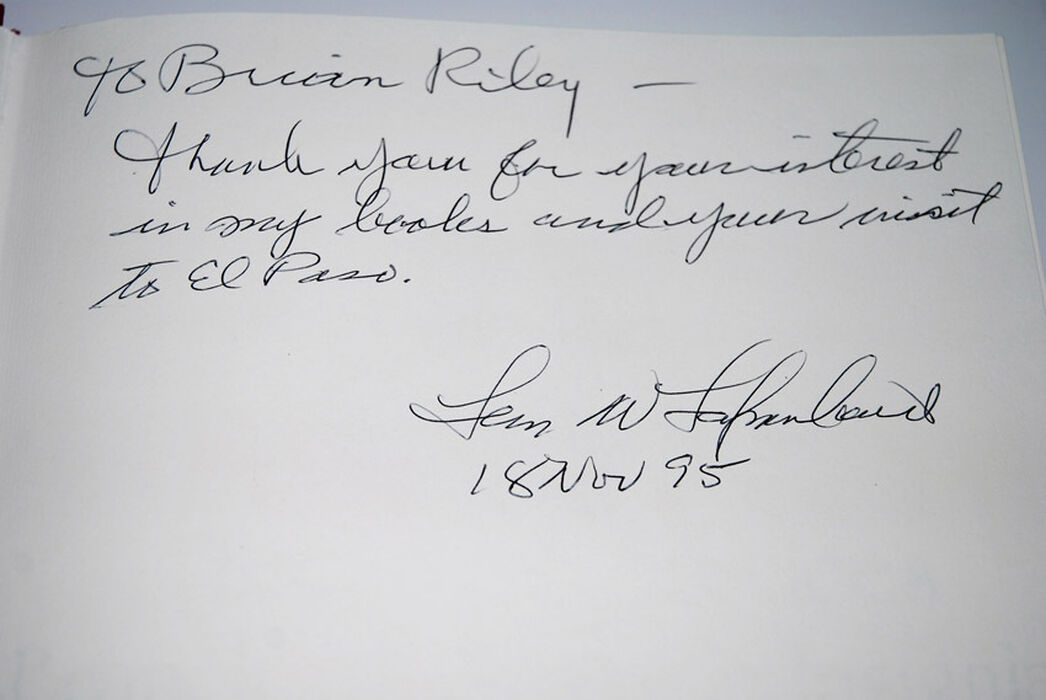 To Brian Riley —
Thank you for your interest
in my books and your visit
to El Paso.
W
18 Nov 95